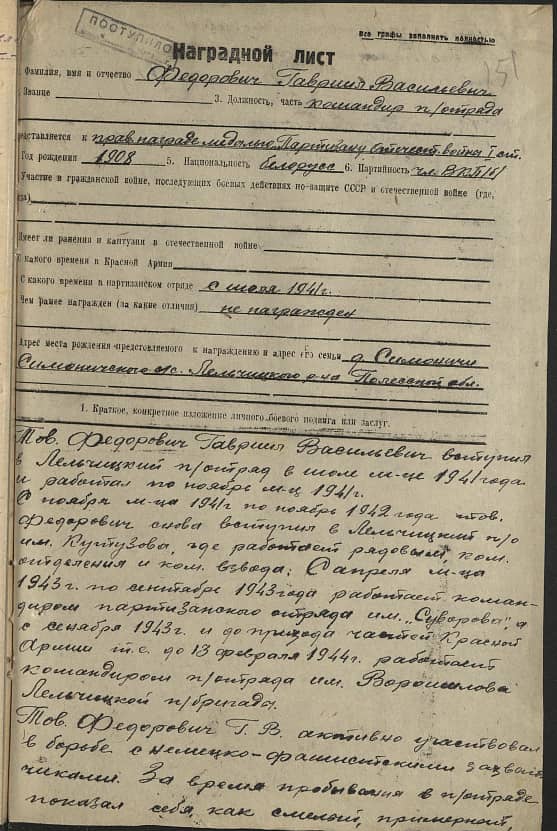 Все графы заполнять полностью
ПОСТУПИЛО
Наградной лист
Фамилия, имя и отчество Федорович Гавриил Васильевич
Звание 3. Должность, часть командир п/отряда
редставляется к прав. награде медалью „Партизану отечест. войны I ст.
Год рождения 1908 5. Национальность белорусс 6. Партийность чл. ВКП/б/
Участие в гражданской войне, последующих боевых действиях по защите СССР и отечественной войне (где,
Имеет ли ранения и кантузии в отечественной войне
С какого времени в Красной Армии
С какого времени в партизанском отряде с июля 1941г.
Чем ранее награжден (за какие отличия) не награжден
Адрес места рождения представляемого к награждению и адрес его семьи д. Симоничи
Симоничского с/с. Лельчицкого р-на Полесской обл.
1. Краткое, конкретное изложение личного боевого подвига или заслуг.
Тов. Федорович Гавриил Васильевич вступил
в Лельчицкий п/отряд в июле м-це 1941 года
и работал по ноябрь м-ц 1941г.
С ноября м-ца 1941г по ноябрь 1942 года тов.
Федорович снова вступил в Лельчицкий п/о
им. Кутузова, где работает рядовым, ком.
отделения и ком. взвода; С апреля м-ца
1943г. по сентябрь 1943 года работает коман-
диром партизанского отряда им. „Суворова", а
с сенября 1943г. и до прихода частей Красной
Армии т.е. до 13 февраля 1944г. работает
командиром п/отряда им. Ворошилова
Лельчицкой п/бригады.
Тов. Федорович Г. В. активно участвовал
в борьбе с немецко-фашистскими захват-
чиками. За время пробывания в п/отряде
показал себя, как смелый, примерный,